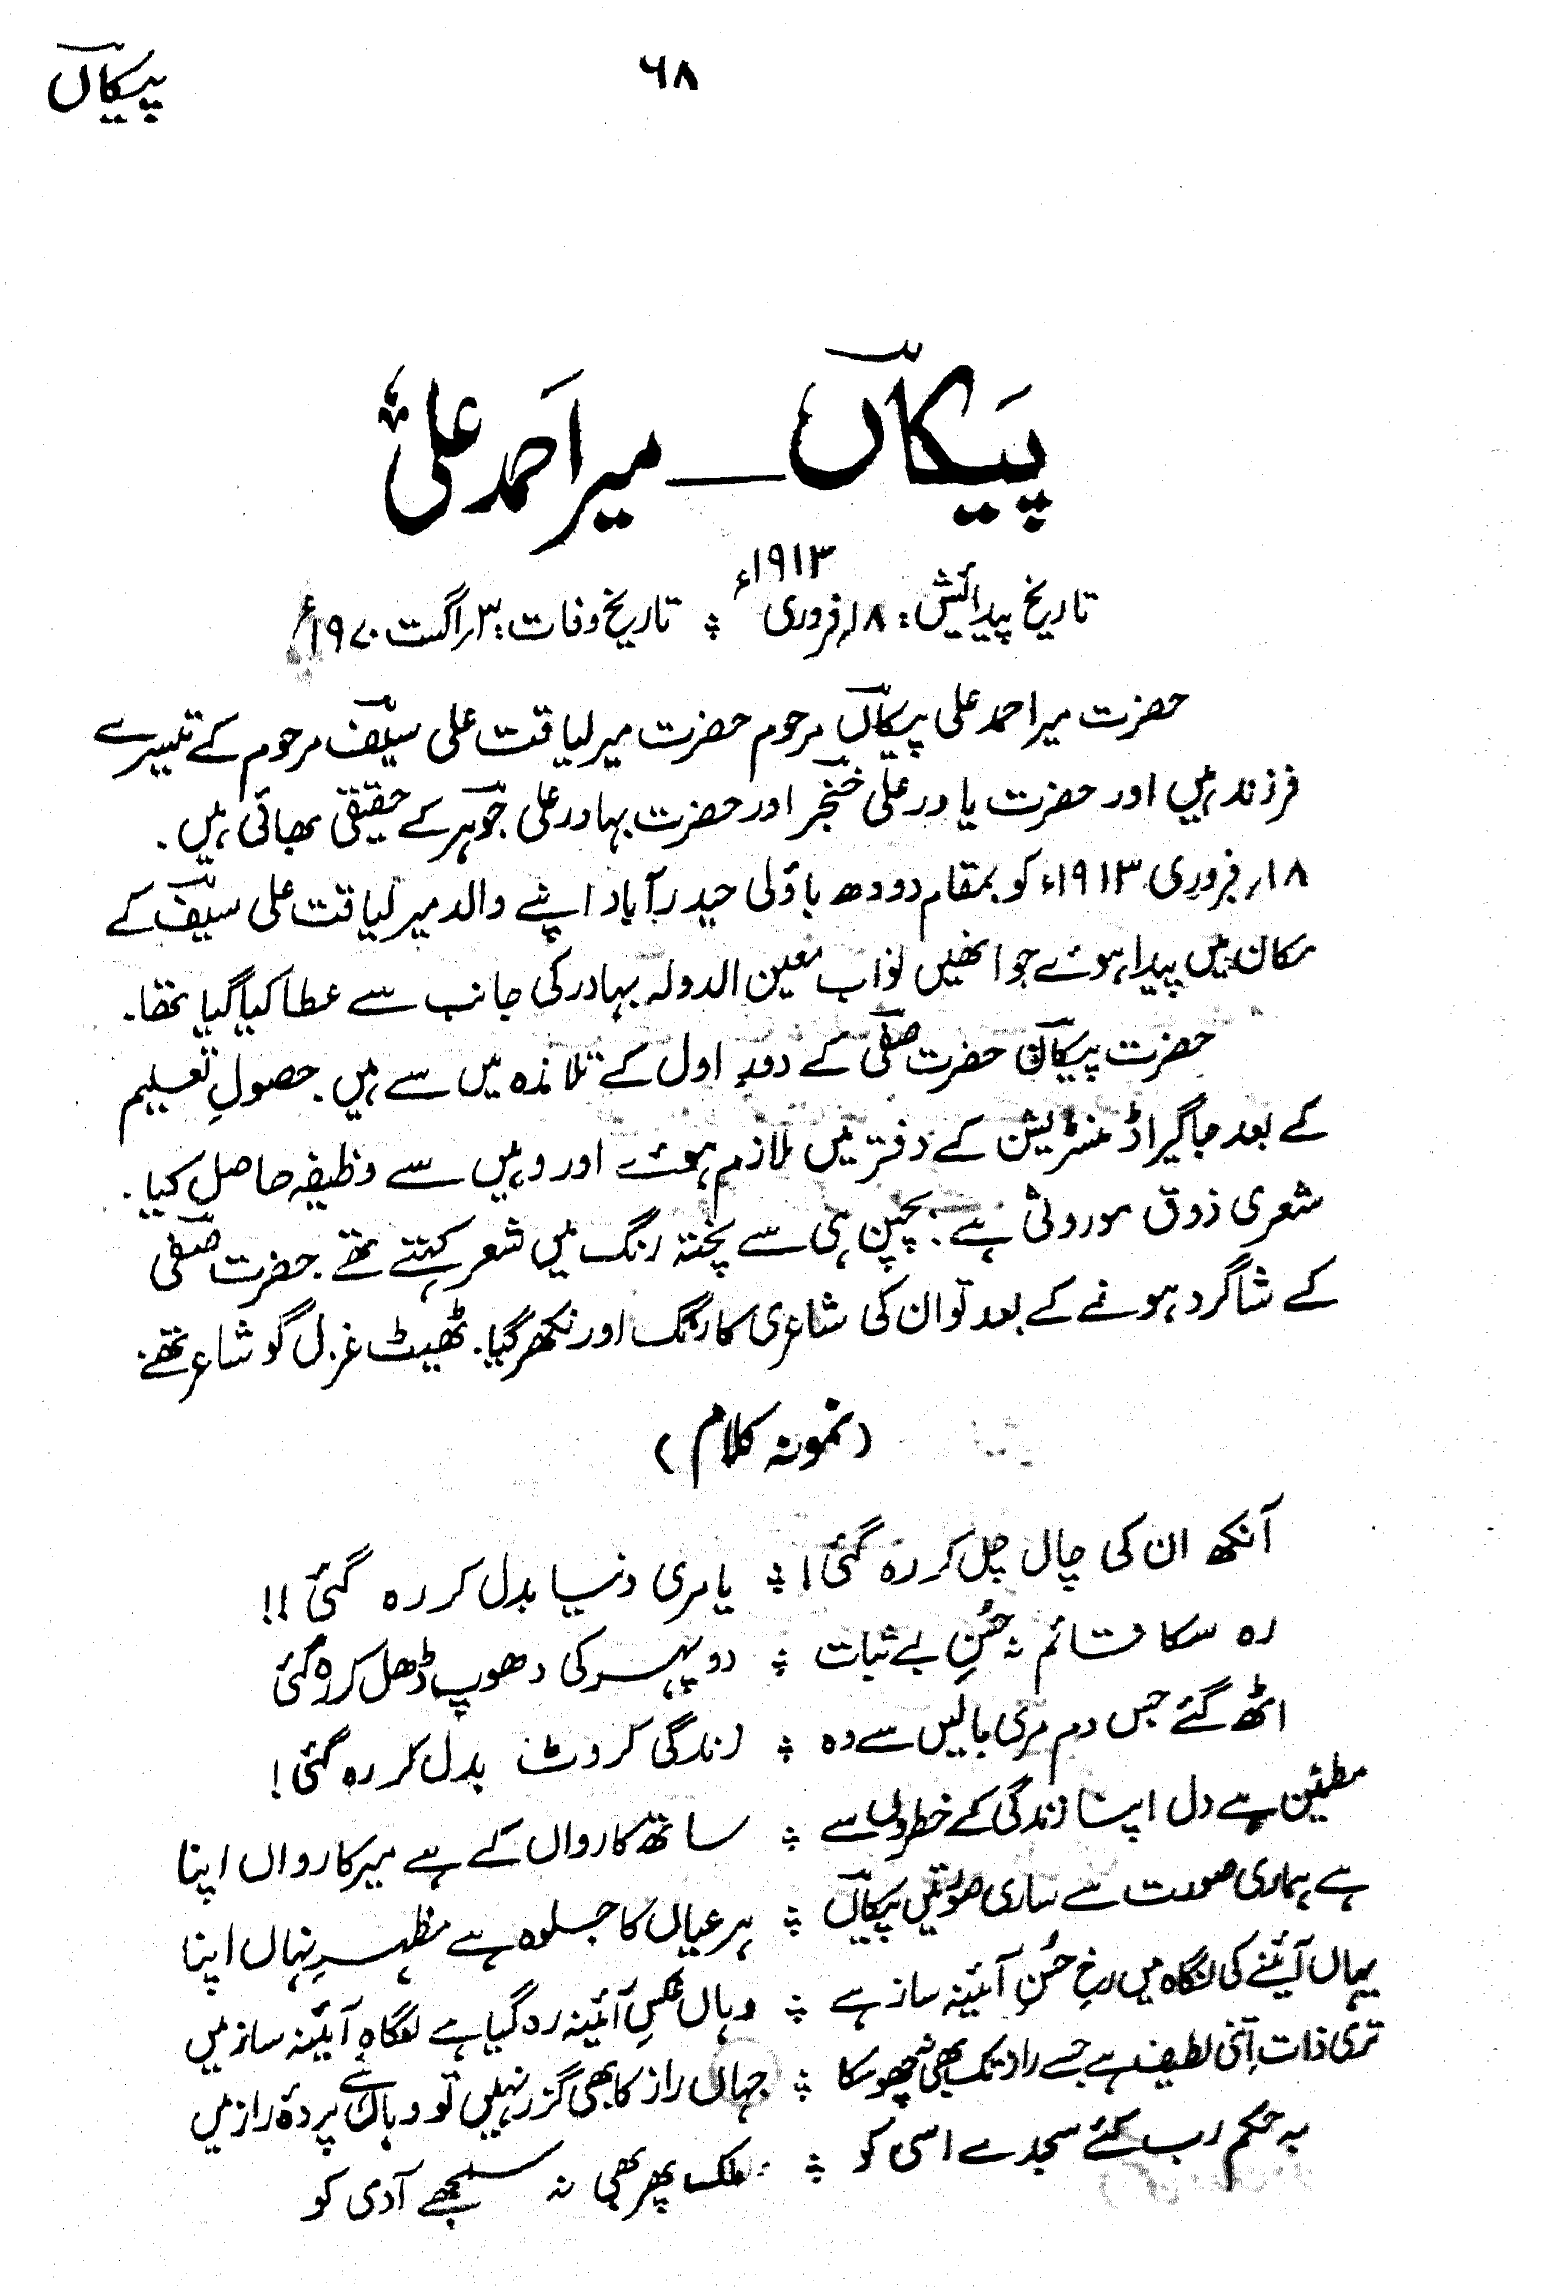 پیکاں
۶۸
پیکاں — میر احمد علیؒ
تاریخ پیدائش: ۱۸؍فروری ۱۹۱۳ء ؞ تاریخ وفات: ۳؍اگست ۱۹۷۰ء
حضرت میر احمد علی پیکاں مرحوم حضرت میر لیاقت علی سیف مرحوم کے تیسرے
فرزند ہیں اور حضرت یاور علی خنجر اور حضرت بہادر علی جوہر کے حقیقی بھائی ہیں۔
۱۸؍فروری ۱۹۱۳ء کو بمقام دودھ باؤلی حیدرآباد اپنے والد میر لیاقت علی سیف کے
مکان میں پیدا ہوئے جو انھیں نواب معین الدولہ بہادر کی جانب سے عطا کیا گیا تھا۔
حضرت پیکاں حضرت صفی کے دور اول کے تلامذہ میں سے ہیں۔ حصولِ تعلیم
کے بعد جاگیر اڈمنسٹریشن کے دفتر میں ملازم ہوئے اور وہیں سے وظیفہ حاصل کیا۔
شعری ذوق موروثی ہے۔ بچپن ہی سے پختہ رنگ میں شعر کہتے تھے۔ حضرت صفی
کے شاگرد ہونے کے بعد تو ان کی شاعری کا رنگ اور نکھر گیا۔ ٹھیٹ غزل گو شاعر تھے۔
(نمونہ کلام)
آنکھ ان کی چال چل کر رہ گئی! ؞ یا مری دنیا بدل کر رہ گئی!!
رہ سکا قائم نہ حُسنِ بے ثبات ؞ دوپہر کی دھوپ ڈھل کر رہ گئی
اٹھ گئے جس دم مری بالیں سے وہ ؞ زندگی کروٹ بدل کر رہ گئی!
مطمئن ہے دل اپنا زندگی کے خطروں سے ؞ ساتھ کارواں کے ہے میر کارواں اپنا
ہے ہماری صورت سے ساری صورتیں پیکاں ؞ ہر عیاں کا جلوہ ہے مظہرِ نہاں اپنا
یہاں آئینے کی نگاہ میں رخِ حُسنِ آئینہ ساز ہے ؞ وہاں عکسِ آئینہ رہ گیا ہے نگاہِ آئینہ ساز میں
تری ذات اِتنی لطیف ہے جسے راز تک بھی نہ چھو سکا ؞ جہاں راز کا بھی گزر نہیں تو وہاں ہے پردۂ راز میں
بہ حکم رب کئے سجدے اسی کو ؞ ملک پھر بھی نہ سمجھے آدمی کو